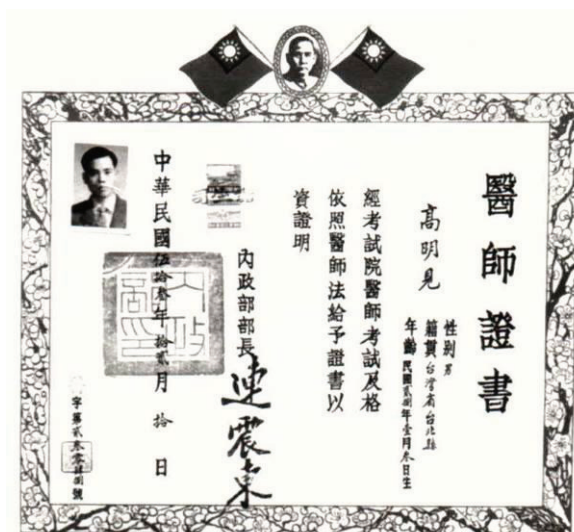 醫師證書
高明見
性別男
籍貫台灣省台北縣
年齡民國貳捌年壹月叁日生
經考試院醫師考試及格
依照醫師法給予證書以
資證明
內政部部長
連震東
中華民國伍拾叁年拾貳月拾日